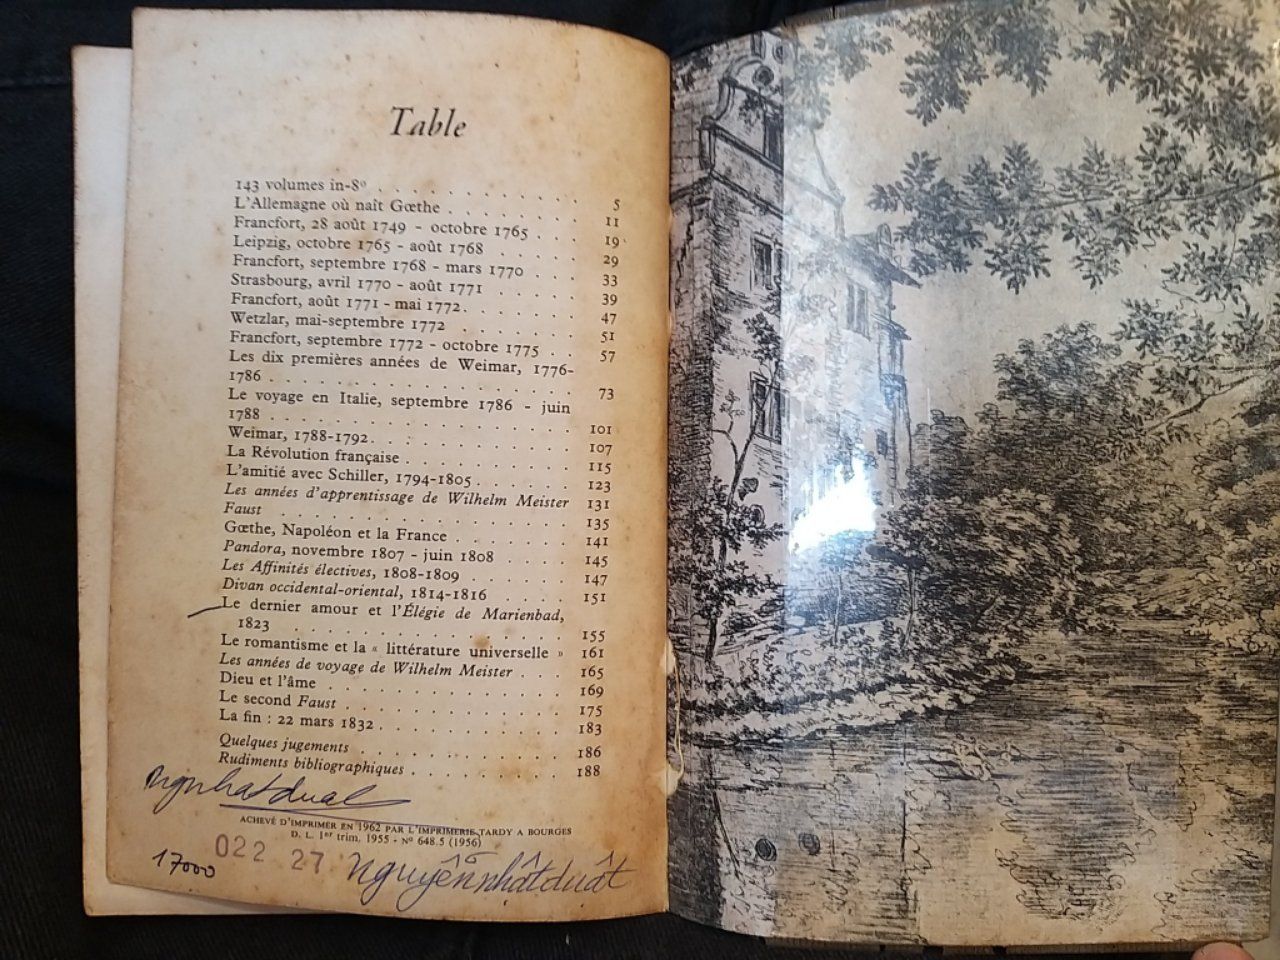 Table
143 volumes in-8º . . . . . . . . . . 5
L'Allemagne où naît Gœthe . . . . . . . 11
Francfort, 28 août 1749 - octobre 1765 . . . 19
Leipzig, octobre 1765 - août 1768 . . . . . 29
Francfort, septembre 1768 - mars 1770 . . . 33
Strasbourg, avril 1770 - août 1771 . . . . . 39
Francfort, août 1771 - mai 1772 . . . . . . 47
Wetzlar, mai-septembre 1772 . . . . . . 51
Francfort, septembre 1772 - octobre 1775 . . 57
Les dix premières années de Weimar, 1776-
1786 . . . . . . . . . . . . . . 73
Le voyage en Italie, septembre 1786 - juin
1788 . . . . . . . . . . . . . . 101
Weimar, 1788-1792 . . . . . . . . . . 107
La Révolution française . . . . . . . . 115
L'amitié avec Schiller, 1794-1805 . . . . . . 123
Les années d'apprentissage de Wilhelm Meister 131
Faust . . . . . . . . . . . . . . 135
Gœthe, Napoléon et la France . . . . . . 141
Pandora, novembre 1807 - juin 1808 . . . . 145
Les Affinités électives, 1808-1809 . . . . . 147
Divan occidental-oriental, 1814-1816 . . . . 151
Le dernier amour et l'Élégie de Marienbad,
1823 . . . . . . . . . . . . . . 155
Le romantisme et la « littérature universelle » 161
Les années de voyage de Wilhelm Meister . . . 165
Dieu et l'âme . . . . . . . . . . . . 169
Le second Faust . . . . . . . . . . . 175
La fin : 22 mars 1832 . . . . . . . . . 183
Quelques jugements . . . . . . . . . . 186
Rudiments bibliographiques . . . . . . . . 188
ngnhatduat
ACHEVÉ D'IMPRIMER EN 1962 PAR L'IMPRIMERIE TARDY A BOURGES
D. L. 1er trim. 1955 - Nº 648.5 (1956)
17000 022 27 nguyễnnhấtduật